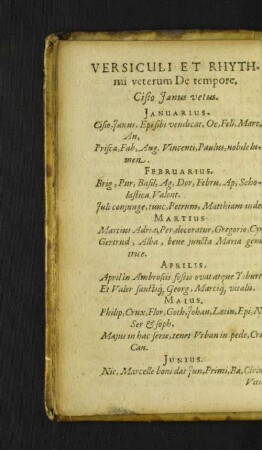 VERSICULI ET RHYTH-
mi veterum De tempore.
Cisio Janus vetus.
JANUARIUS.
Cisio, Janus, Epi sibi vendicat, Oc, Feli, Marc,
An,
Prisca, Fab, Aug, Vincenti, Paulus, nobile lu-
men.
FEBRUARIUS.
Brig, Pur, Basil, Ag, Dor, Febru, Ap, Scho-
lastica, Valent.
Juli conjunge, tunc, Petrum, Matthiam inde
MARTIUS
Martius Adria, Per decoratur, Gregorio, Cyr
Gertrud, Alba, bene juncta Maria geni-
trice.
APRILIS.
April in Ambrosii festis ovat atque Tiburt
Et Valer sanctiq, Georg, Marciq, vitalis.
MAIUS.
Philip, Crux, Flor, Goth, Johan, Latin, Epi, N
Ser & soph,
Majus in hac serie, tenet Urban in pede, Cri
Can.
JUNIUS.
Nic, Marcelle boni dat Jun, Primi, Ba, Cirin
Viti